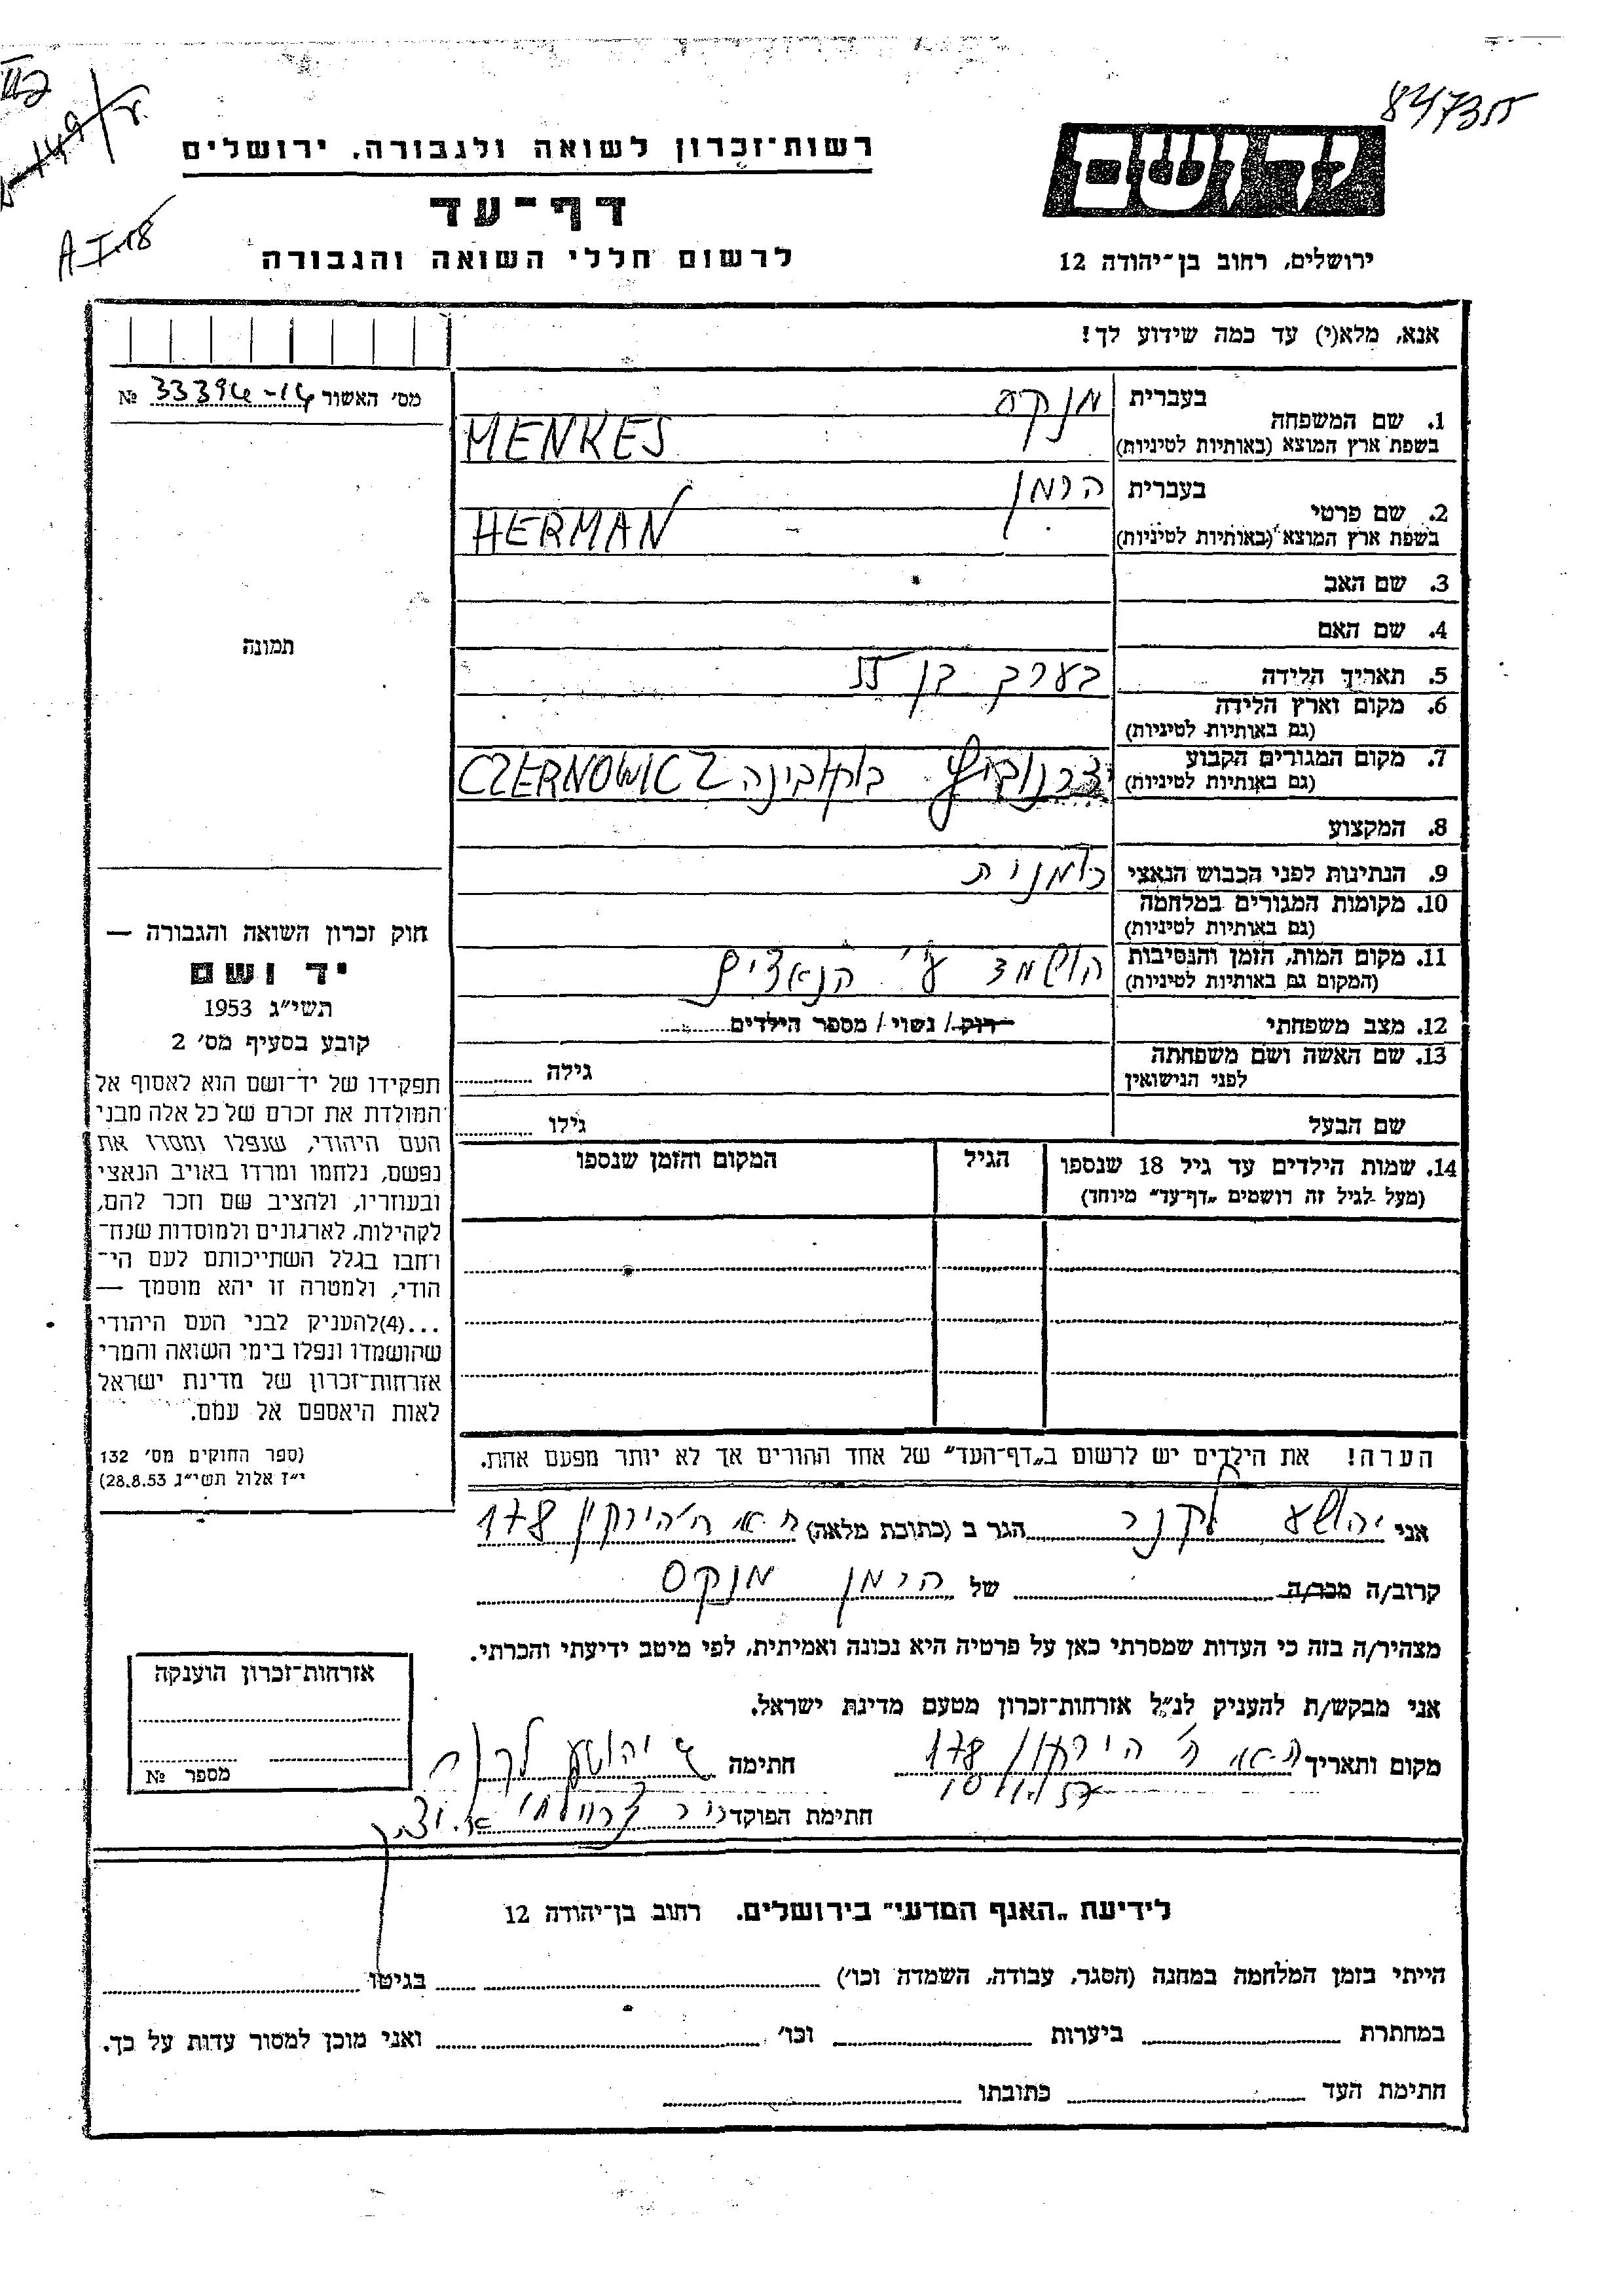 84735
רשות־זכרון לשואה ולגבורה, ירושלים
דף־עד
לרשום חללי השואה והגבורה
ידושם
ירושלים, רחוב בן־יהודה 12
A I 18
אנא, מלא(י) עד כמה שידוע לך!
מס׳ האשור 33394-14 №
1. שם המשפחה
בעברית
בשפת ארץ המוצא (באותיות לטיניות)
MENKES
2. שם פרטי
בעברית הרמן
בשפת ארץ המוצא (באותיות לטיניות)
HERMAN
3. שם האב
4. שם האם
תמונה
5. תאריך הלידה בערך בן
6. מקום וארץ הלידה
(גם באותיות לטיניות)
7. מקום המגורים הקבוע
(גם באותיות לטיניות)
בוקובינה CZERNOWICZ
8. המקצוע
9. הנתינות לפני הכבוש הנאצי
10. מקומות המגורים במלחמה
(גם באותיות לטיניות)
11. מקום המות, הזמן והנסיבות
(המקום גם באותיות לטיניות)
הושמד ע״י הנאצים
12. מצב משפחתי רוק / נשוי / מספר הילדים
13. שם האשה ושם משפחתה
לפני הנישואין
גילה
שם הבעל גילו
14. שמות הילדים עד גיל 18 שנספו
(מעל לגיל זה רושמים „דף־עד״ מיוחד)
הגיל
המקום והזמן שנספו
חוק זכרון השואה והגבורה —
יד ושם
תשי״ג 1953
קובע בסעיף מס׳ 2
תפקידו של יד־ושם הוא לאסוף אל
המולדת את זכרם של כל אלה מבני
העם היהודי, שנפלו ומסרו את
נפשם, נלחמו ומרדו באויב הנאצי
ובעוזריו, ולהציב שם וזכר להם,
לקהילות, לארגונים ולמוסדות שנח־
רחבו בגלל השתייכותם לעם הי־
הודי, ולמטרה זו יהא מוסמך —
...(4) להעניק לבני העם היהודי
שהושמדו ונפלו בימי השואה והמרי
אזרחות־זכרון של מדינת ישראל
לאות היאספם אל עמם.
(ספר החוקים מס׳ 132
י״ז אלול תשי״ג 28.8.53)
הערה! את הילדים יש לרשום ב„דף־העד״ של אחד ההורים אך לא יותר מפעם אחת.
אני יהושע לקנר הגר ב (כתובת מלאה) ת״א הירקון 178
קרוב/ה מכר/ה של הרמן מנקס
מצהיר/ה בזה כי העדות שמסרתי כאן על פרטיה היא נכונה ואמיתית, לפי מיטב ידיעתי והכרתי.
אני מבקש/ת להעניק לנ״ל אזרחות־זכרון מטעם מדינת ישראל.
מקום ותאריך ת״א הירקון 178
חתימה
חתימת הפוקד
אזרחות־זכרון הוענקה
מספר №
לידיעת „האגף המדעי״ בירושלים. רחוב בן־יהודה 12
הייתי בזמן המלחמה במחנה (הסגר, עבודה, השמדה וכו׳) בגיטו
במחתרת ביערות וכו׳ ואני מוכן למסור עדות על כך.
חתימת העד כתובתו